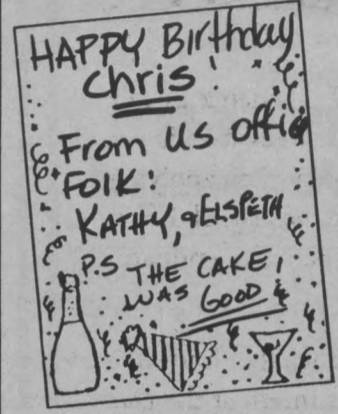 HAPPY Birthday
Chris!
From us office
FOLK:
KATHY, & ELSPETH
P.S THE CAKE,
WAS GOOD